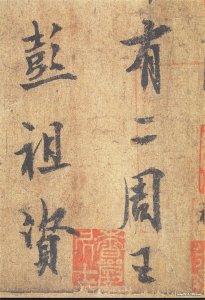 有二周王
彭祖資